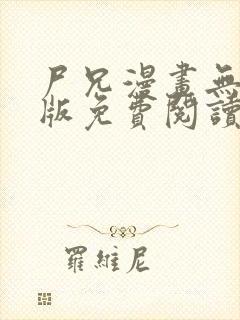 尸兄漫畫無
版免費閱讀
羅維尼